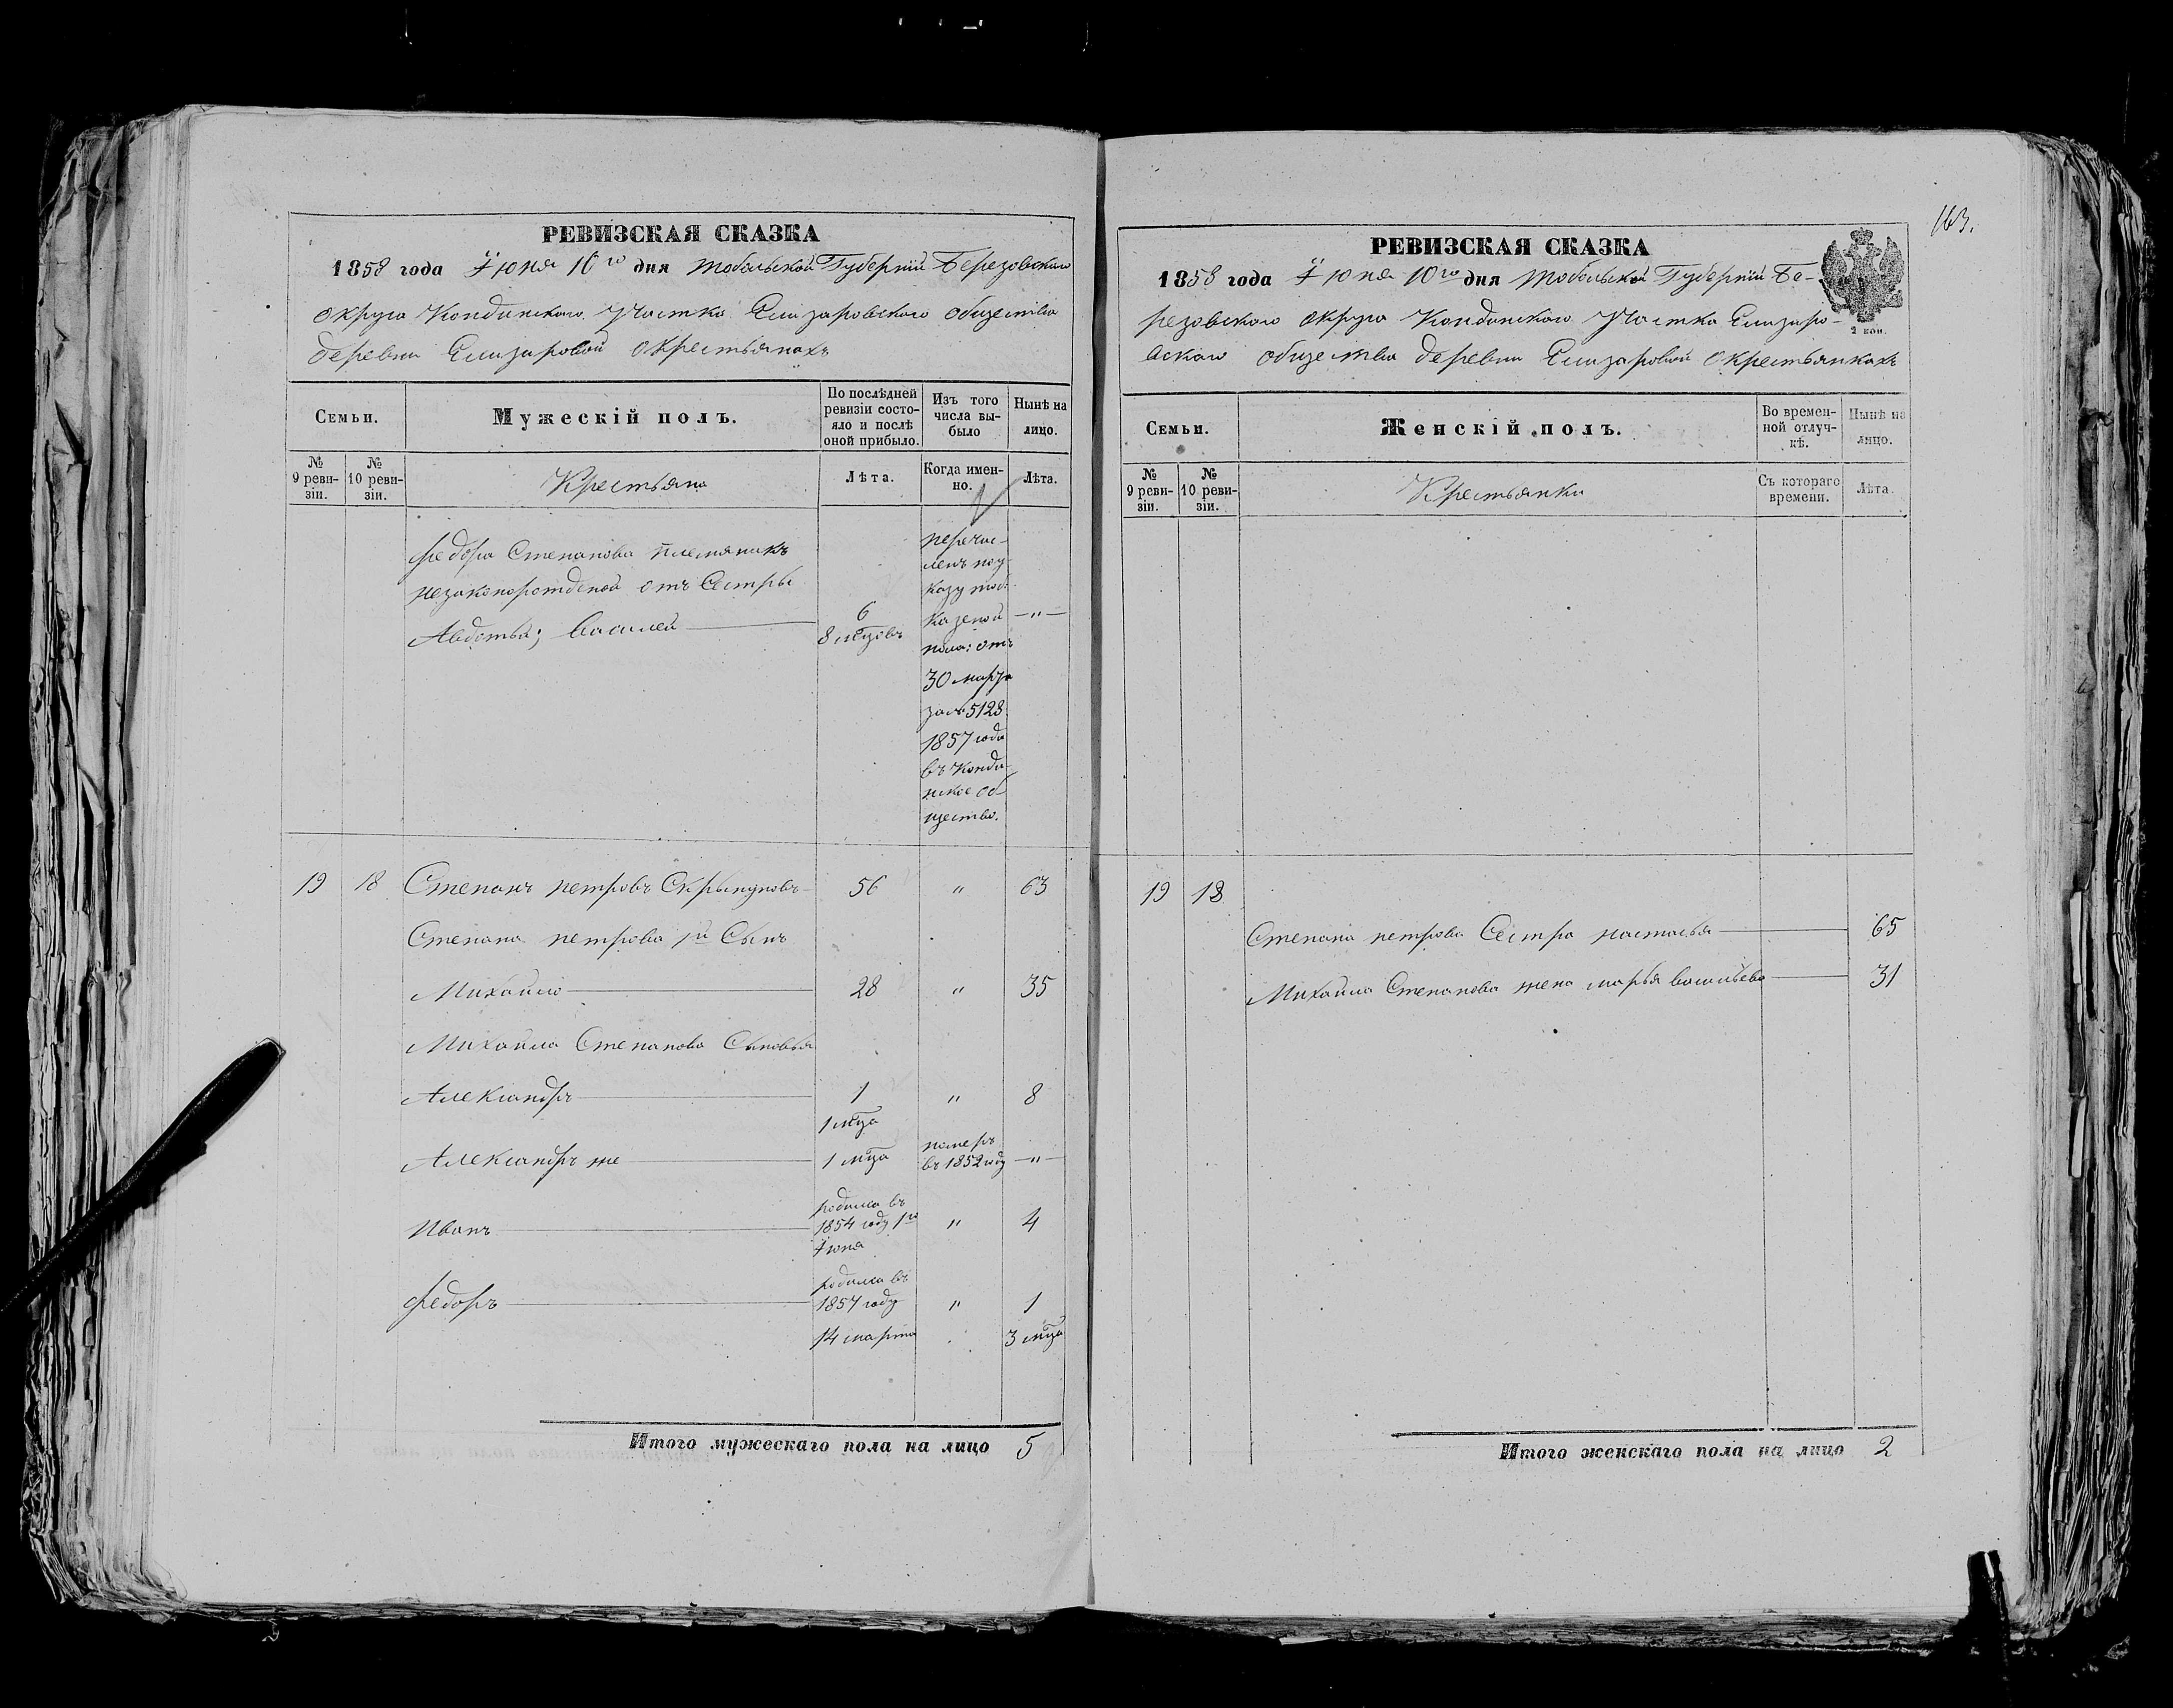 163.
РЕВИЗСКАЯ СКАЗКА
1858 года Іюня 10го дня Тобольской Губерніи Березовскаго
округа Кондинскаго Участка Елизаровскаго общества
деревни Елизаровой окрестьянахъ
Семьи.
Мужескій полъ.
По послѣдней ревизіи состояло и послѣ оной прибыло.
Изъ того числа выбыло
Нынѣ на лицо.
№ 9 ревизіи.
№ 10 ревизіи.
Крестьяна
Лѣта.
Когда именно.
Лѣта.
Федора Степанова племяникъ
незаконорожденой отъ Сестры
Авдотьи; Василей
6
8 мцовъ
перечис-
ленъ поу
казу тоб:
казеной
пала: отъ
30 марта
за № 5128
1857 года
въ Конди-
нское об
щество.
—"—
19 18 Степанъ петровъ Скрипуновъ 56 " 63
Степана петрова 1й Сынъ
Михайло 28 " 35
Михайла Степанова Сыновья
Александръ 1 " 8
1 мца
Александръ же 1 мца
померъ
въ 1852 году —"—
Иванъ
родился въ
1854 году 1го
Іюня
" 4
Федоръ
родился въ
1857 году
14 марта
" 1
3 мца
Итого мужескаго пола на лицо 5
РЕВИЗСКАЯ СКАЗКА
1858 года Іюня 10го дня Тобольской Губерніи Бе-
резовскаго округа Кондинскаго Участка Елизаро-
вскаго общества деревни Елизаровой окрестьянкахъ
2 коп.
Семьи.
Женскій полъ.
Во временной отлучкѣ.
Нынѣ на лицо.
№ 9 ревизіи.
№ 10 ревизіи.
Крестьянки
Съ котораго времени.
Лѣта.
19 18
Степана петрова Сестра настасья 65
Михайла Степанова жена марья васильева 31
Итого женскаго пола на лицо 2